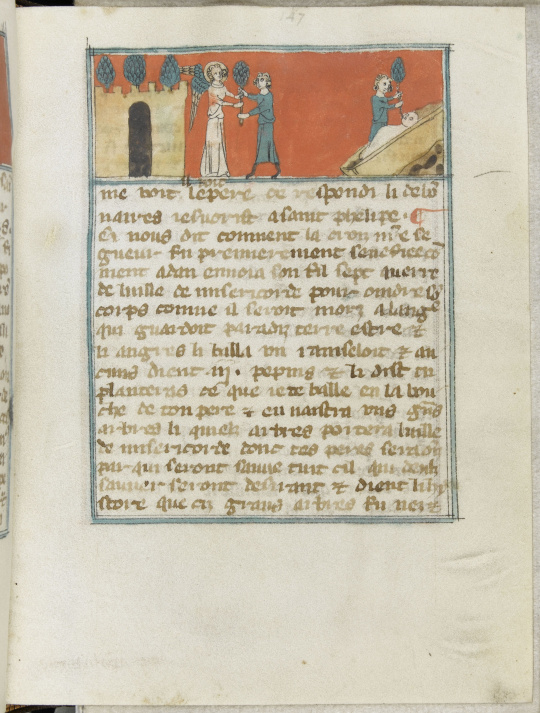 147
voit
me voit lepere ce respondi li debō
naires ihesucrist a saint phelipe ·
Et nous dit comment la crois nr̄e se
gneur fu premierement senefiee cō
ment adam enuoia son fil sept querre
de luille de misericorde pour oindre sō
corps comme il seroit mort a lange
qui guardoit paradiz terrestre et
li angres li bailla un rainseloit et au
cuns dient .iij. pepins et li dist tu
planteras ce que ie te baille en la bou
che de ton pere et en naistra uns grās
arbres li quielz arbres portera luille
de misericorde donc tes peres sera oīz
par qui seront sauue tuit cil qui deuls
sauuer seront desirant et dient li hy
stoire que cilz grans arbres fu uerz